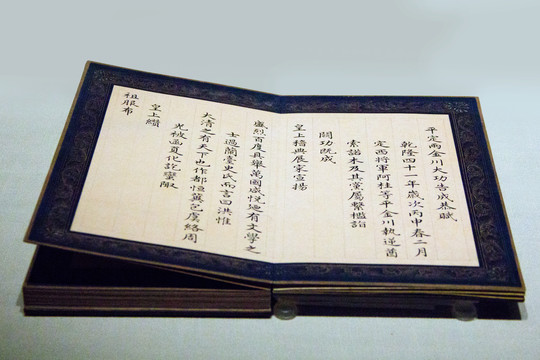 平定兩金川大功告成恭賦
乾隆四十一年歲次丙申春二月
定西將軍阿桂等平金川執逆酋
索諾木及其黨屬繫檻詣
闕功既成
皇上稽典展寀宣揚
盛烈百度具舉萬國咸悅迺有文學之
士過蘭臺史氏而言曰洪惟
大清之有天下也作都恒冀邑虞絡周
光被函夏化訖蠻陬
皇上纘
祖服布